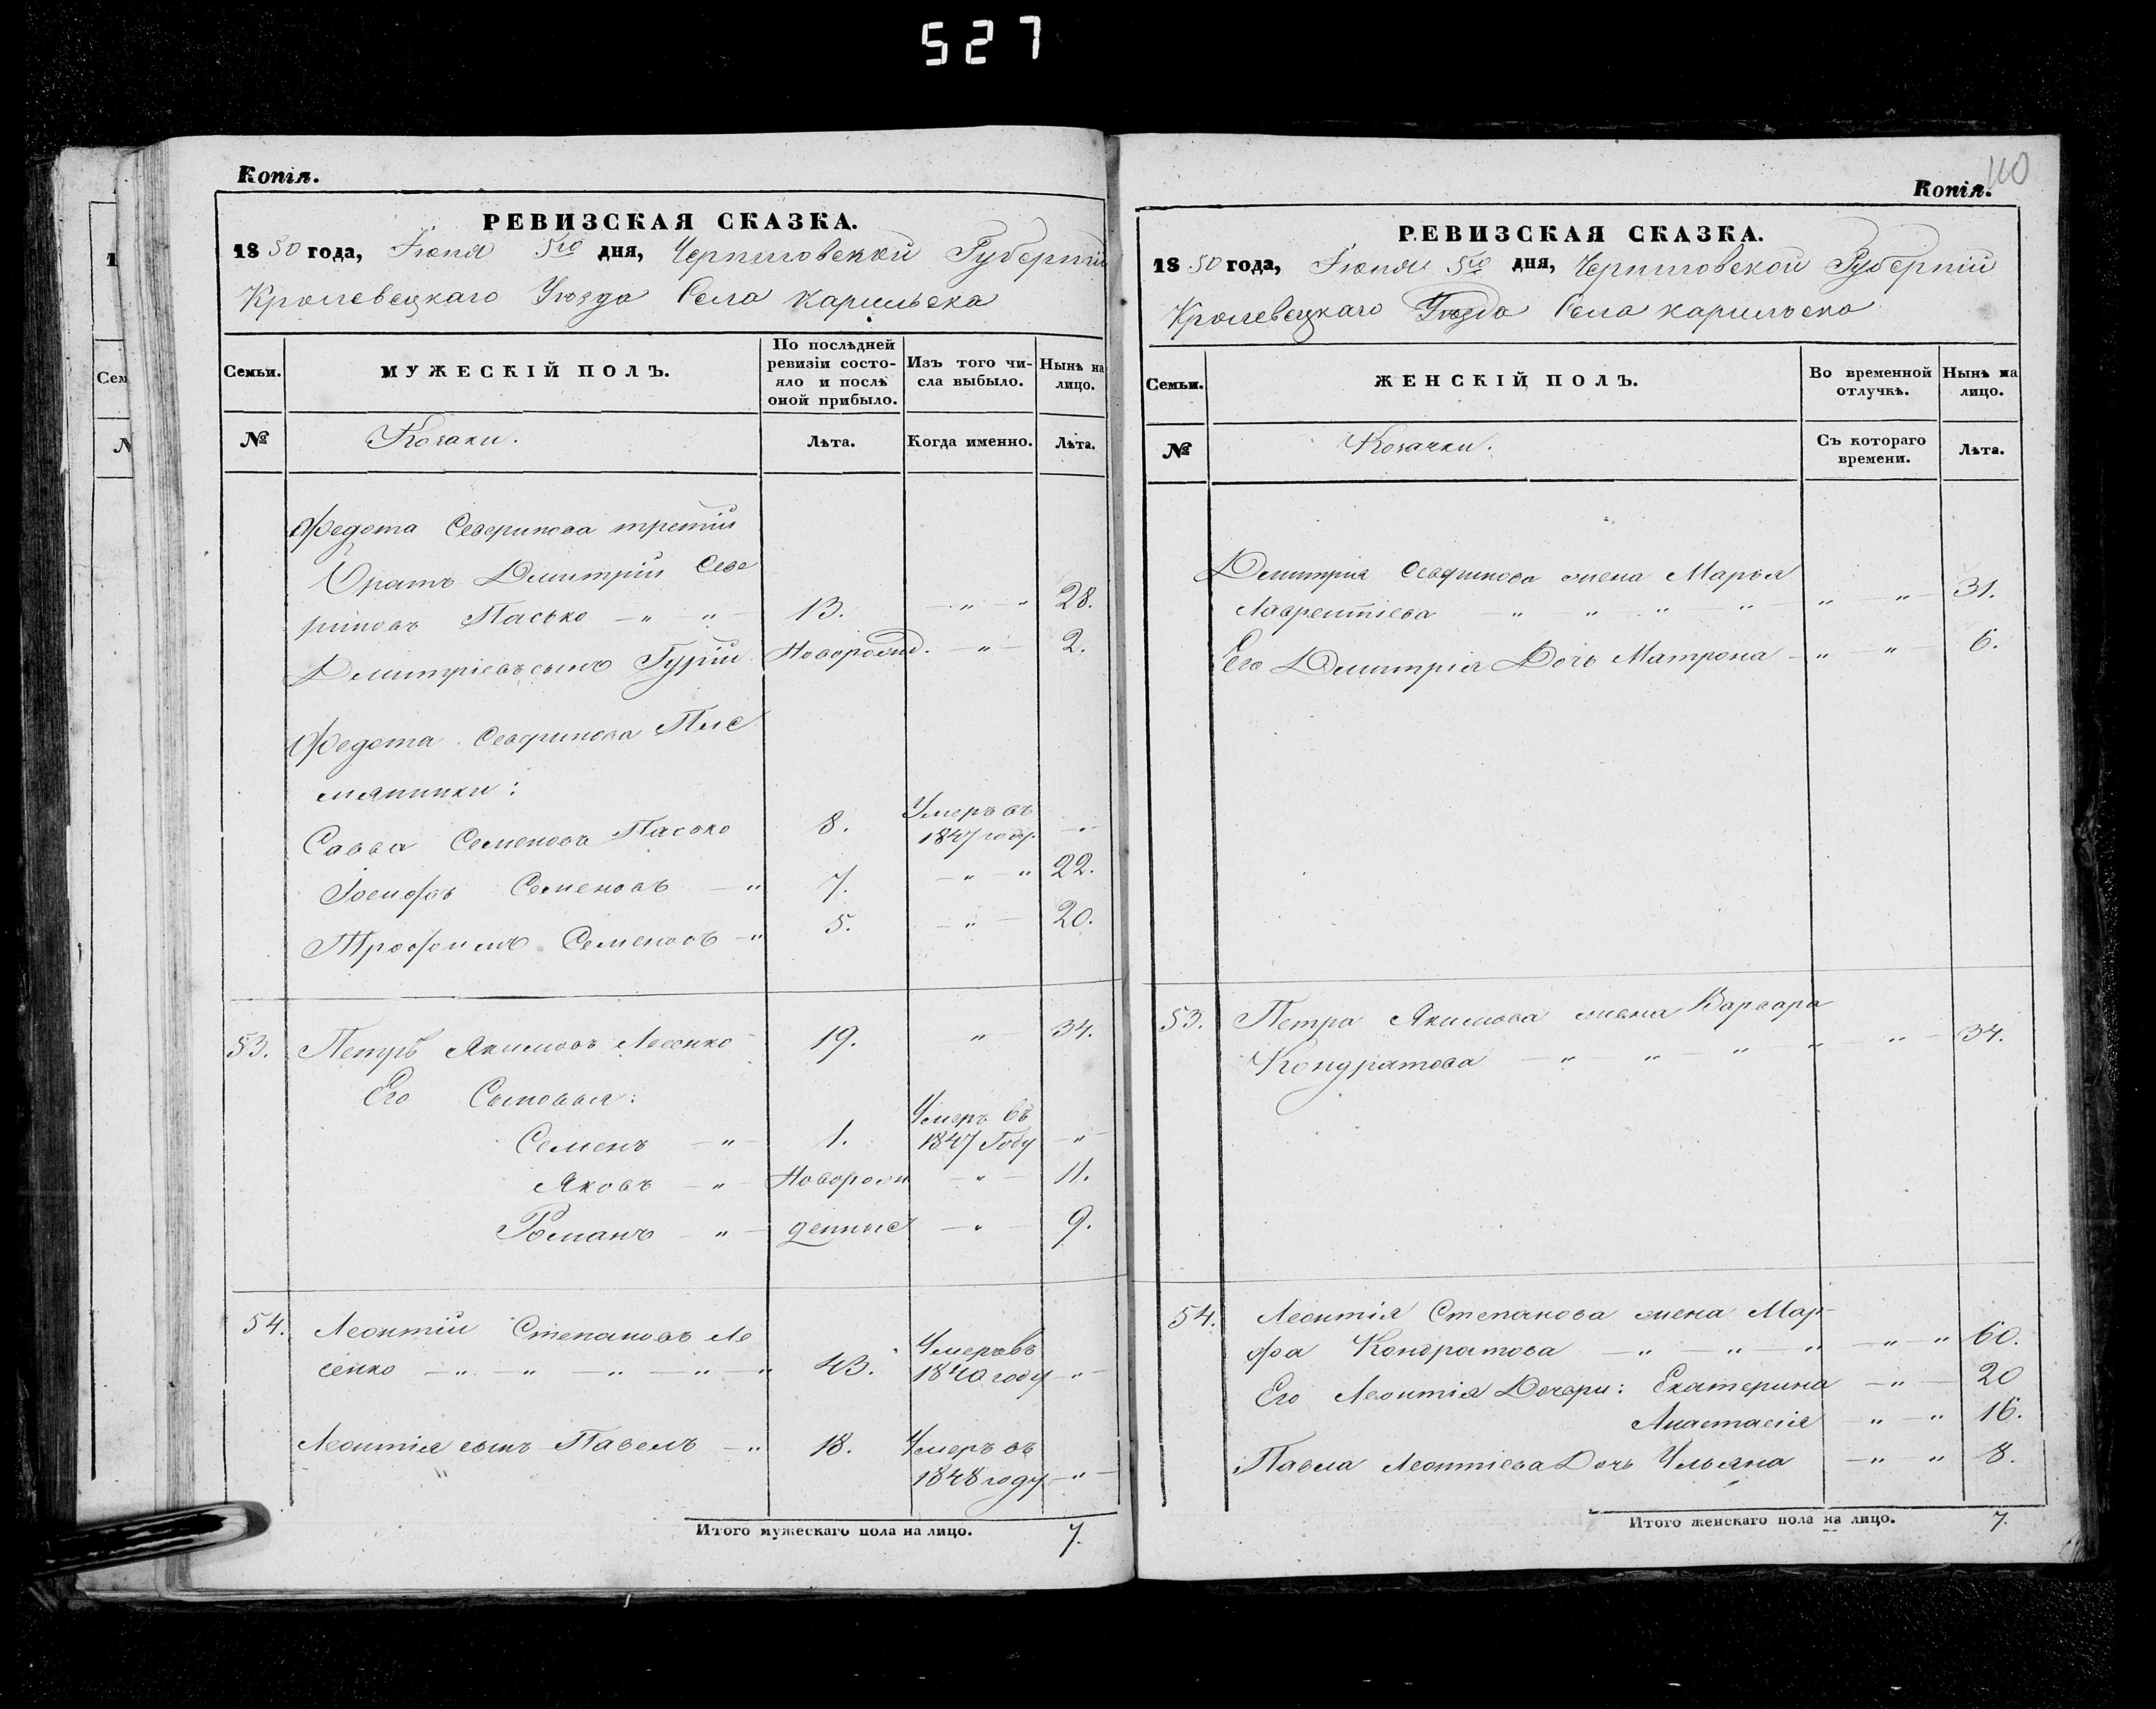 527
Копія.
РЕВИЗСКАЯ СКАЗКА.
1850 года, Іюня 5го дня, Черниговской Губерніи
Кролевецкаго Уѣзда Села Карильска
Семьи.
МУЖЕСКІЙ ПОЛЪ.
По послѣдней ревизіи состо-
яло и послѣ оной прибыло.
Изъ того чи-
сла выбыло.
Нынѣ на
лицо.
№
Козаки.
Лѣта.
Когда именно.
Лѣта.
Федота Северинова третій
братъ Дмитрій Севе
риновъ Пасько — „ „ 13. — „ — „ 28.
Дмитріевъ сынъ Гурій Новорожд. — „ — 2.
Федота Северинова Пле
мянники:
Савва Семеновъ Пасько 8. Умеръ въ
1847 году. — „
Іосифъ Семеновъ — „ 7. — „ — „ 22.
Трофимъ Семеновъ — „ 5. — „ — 20.
53. Петръ Якимовъ Лесенко 19. „ — 34.
Его Сыновья:
Семенъ — „ — 1. Умеръ въ
1847 Году — „ —
Яковъ — „ — Новорож — „ — 11.
Романъ — „ — денные — „ — 9.
54. Леонтій Степановъ Ле
сенко — „ — „ — „ — „ — „ 43. Умеръ въ
1840 году — „ —
Леонтія сынъ Павелъ — „ 18. Умеръ въ
1848 году — „ —
Итого мужескаго пола на лицо. 7.
110
Копія.
РЕВИЗСКАЯ СКАЗКА.
1850 года, Іюня 5го дня, Черниговской Губерніи
Кролевецкаго Уѣзда Села Карильска
Семьи.
ЖЕНСКІЙ ПОЛЪ.
Во временной
отлучкѣ.
Нынѣ на
лицо.
№
Козачки.
Съ котораго
времени.
Лѣта.
Дмитрія Северинова жена Марья
Лаврентіева — „ „ „ „ — „ — „ — 31.
Его Дмитрія Дочь Матрона — „ — „ — 6.
53. Петра Якимова жена Варвара
Кондратова — „ — „ — „ — „ — „ — 34.
54. Леонтія Степанова жена Мар-
фа Кондратова — „ — „ — „ — „ — „ 60.
Его Леонтія Дочери: Екатерина — „ — 20
Анастасія — „ — „ 16.
Павла Леонтіева Дочь Ульяна — „ — „ 8.
Итого женскаго пола на лицо. 7.